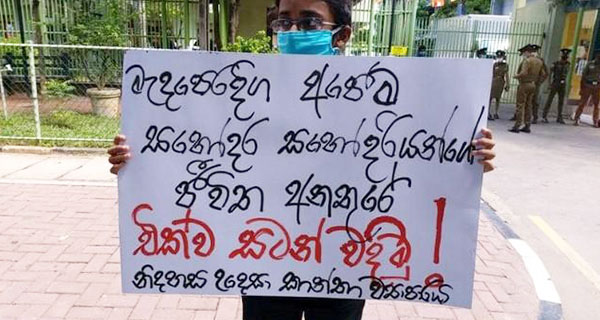 මැදපෙරදිග අපේම
සහෝදර සහෝදරියන්ගේ
ජීවිත අනතුරේ
එක්ව සටන් වදිමු !
නිදහස උදෙසා කාන්තා ව්‍යාපාරය